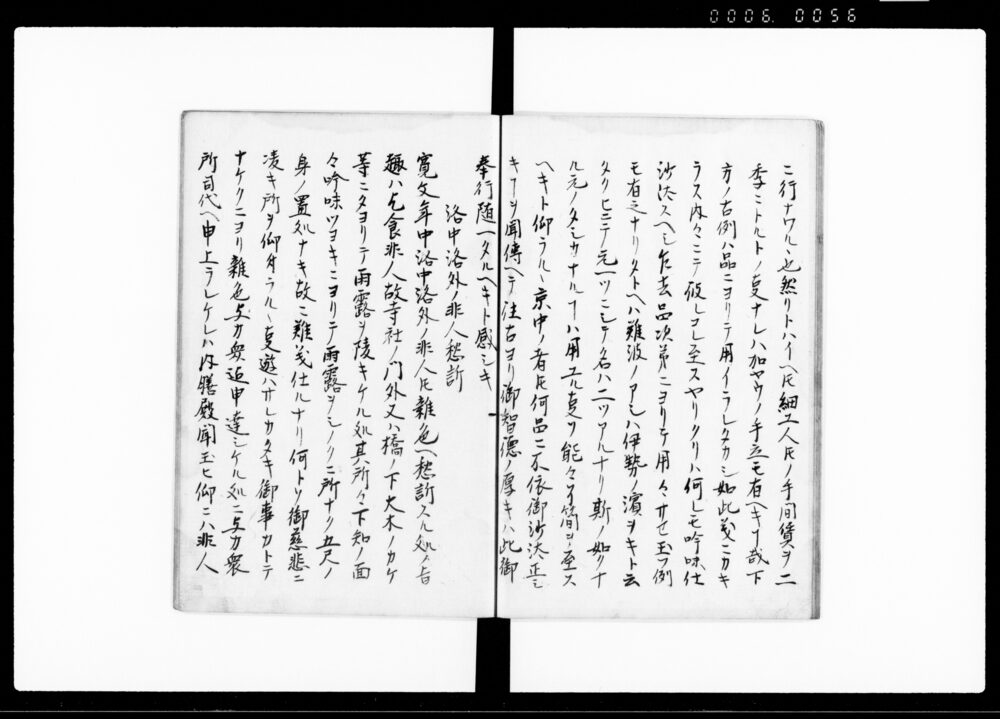 0006. 0056
ニ行ナワルヽ也然リトハイヘ𪜈細工人𪜈ノ手間賃ヲ二
季ニトルトノ叓ナレハ加ヤウノ手立モ有ヘキナ哉下
方ノ古例ハ品ニヨリテ用イラレタカシ如此義ニカキ
ラス内々ニテ依レヨレ至スヤリクリハ何レモ吟味仕
沙汰スヘシ乍去品次第ニヨリテ用々サセ玉フ例
モ有之ナリタトヘハ難波ノアシハ伊勢ノ濱ヲキト云
タクヒニテ元一ツニシテ名ハ二ツアルナリ斯ノ如クナ
ル元ノタシカナルヿハ用ユル叓ヲ能々了簡ヲ至ス
ヘキト仰ラルヽ京中ノ者𪜈何品ニ不依御沙汰正シ
キヿヲ聞傳ヘテ往古ヨリ御智德ノ厚キハ此御
奉行随一タルヘキト感シキ
洛中洛外ノ非人愁訴
寛文年中洛中洛外ノ非人𪜈雜色ヘ愁訴スル処ノ旨
趣ハ乞食非人故寺社ノ門外又ハ橋ノ下大木ノカケ
等ニタヨリテ雨露ヲ陵キケル処其所々下知ノ面
々吟味ツヨキニヨリテ雨露ヲシノクニ所ナク五尺ノ
身ノ置処ナキ故ニ難義仕ルナリ何トソ御慈悲ニ
凌キ所ヲ仰付ラルヽ叓遊ハサレカタキ御事カトテ
ナケクニヨリ雜色与力衆迠申達シケル処ニ与力衆
所司代ヘ申上ラレケレハ内膳殿聞玉ヒ仰ニハ非人